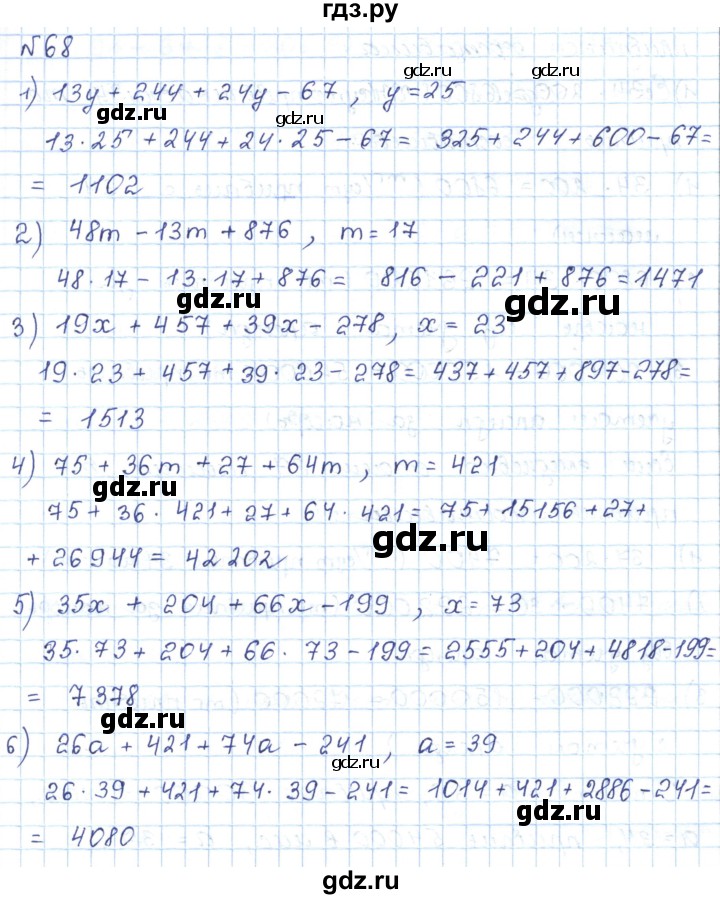 гдз.ру
№68
1) 13y + 244 + 24y - 67 , y = 25
13 · 25 + 244 + 24 · 25 - 67 = 325 + 244 + 600 - 67 =
= 1102
2) 48m - 13m + 876 , m = 17
48 · 17 - 13 · 17 + 876 = 816 - 221 + 876 = 1471
3) 19x + 457 + 39x - 278 , x = 23
19 · 23 + 457 + 39 · 23 - 278 = 437 + 457 + 897 - 278 =
= 1513
4) 75 + 36m + 27 + 64m , m = 421
75 + 36 · 421 + 27 + 64 · 421 = 75 + 15156 + 27 +
+ 26944 = 42202
5) 35x + 204 + 66x - 199 , x = 73
35 · 73 + 204 + 66 · 73 - 199 = 2555 + 204 + 4818 - 199 =
= 7378
6) 26a + 421 + 74a - 241 , a = 39
26 · 39 + 421 + 74 · 39 - 241 = 1014 + 421 + 2886 - 241 =
= 4080
gdz.ru
gdz.ru
gdz.ru
gdz.ru
gdz.ru
gdz.ru
gdz.ru
gdz.ru
gdz.ru
gdz.ru
gdz.ru
gdz.ru